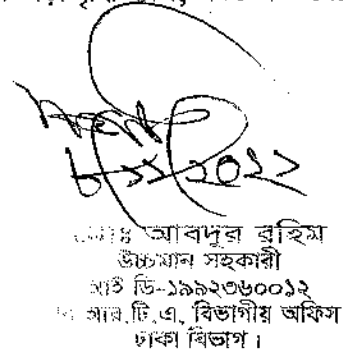 ৮/১১/২০১২
মোঃ আবদুর রহিম
উচ্চমান সহকারী
আই ডি-১৯৯২৩৬০০১২
আর.টি.এ, বিভাগীয় অফিস
ঢাকা বিভাগ।